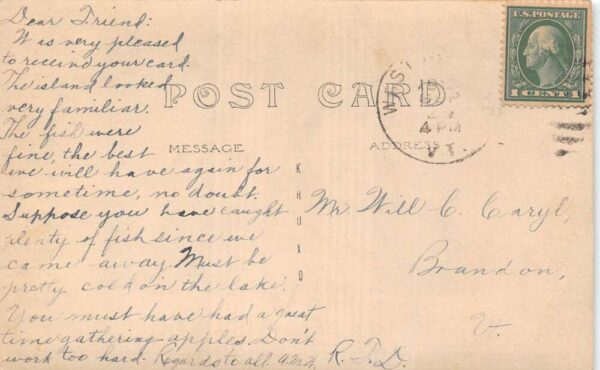 Dear Friend:
Was very pleased
to receive your card.
The island looked
very familiar.
The fish were
fine, the best
we will have again for
sometime, no doubt.
Suppose you have caught
plenty of fish since we
came away. Must be
pretty cold on the lake.
You must have had a great
time gathering apples. Don't
work too hard. Regards to all.
POST CARD
MESSAGE
ADDRESS
KRUXO
U.S. POSTAGE
1 CENT 1
4 PM
VT.
Mr. Will C. Caryl,
Brandon,
Vt.
R. F. D.